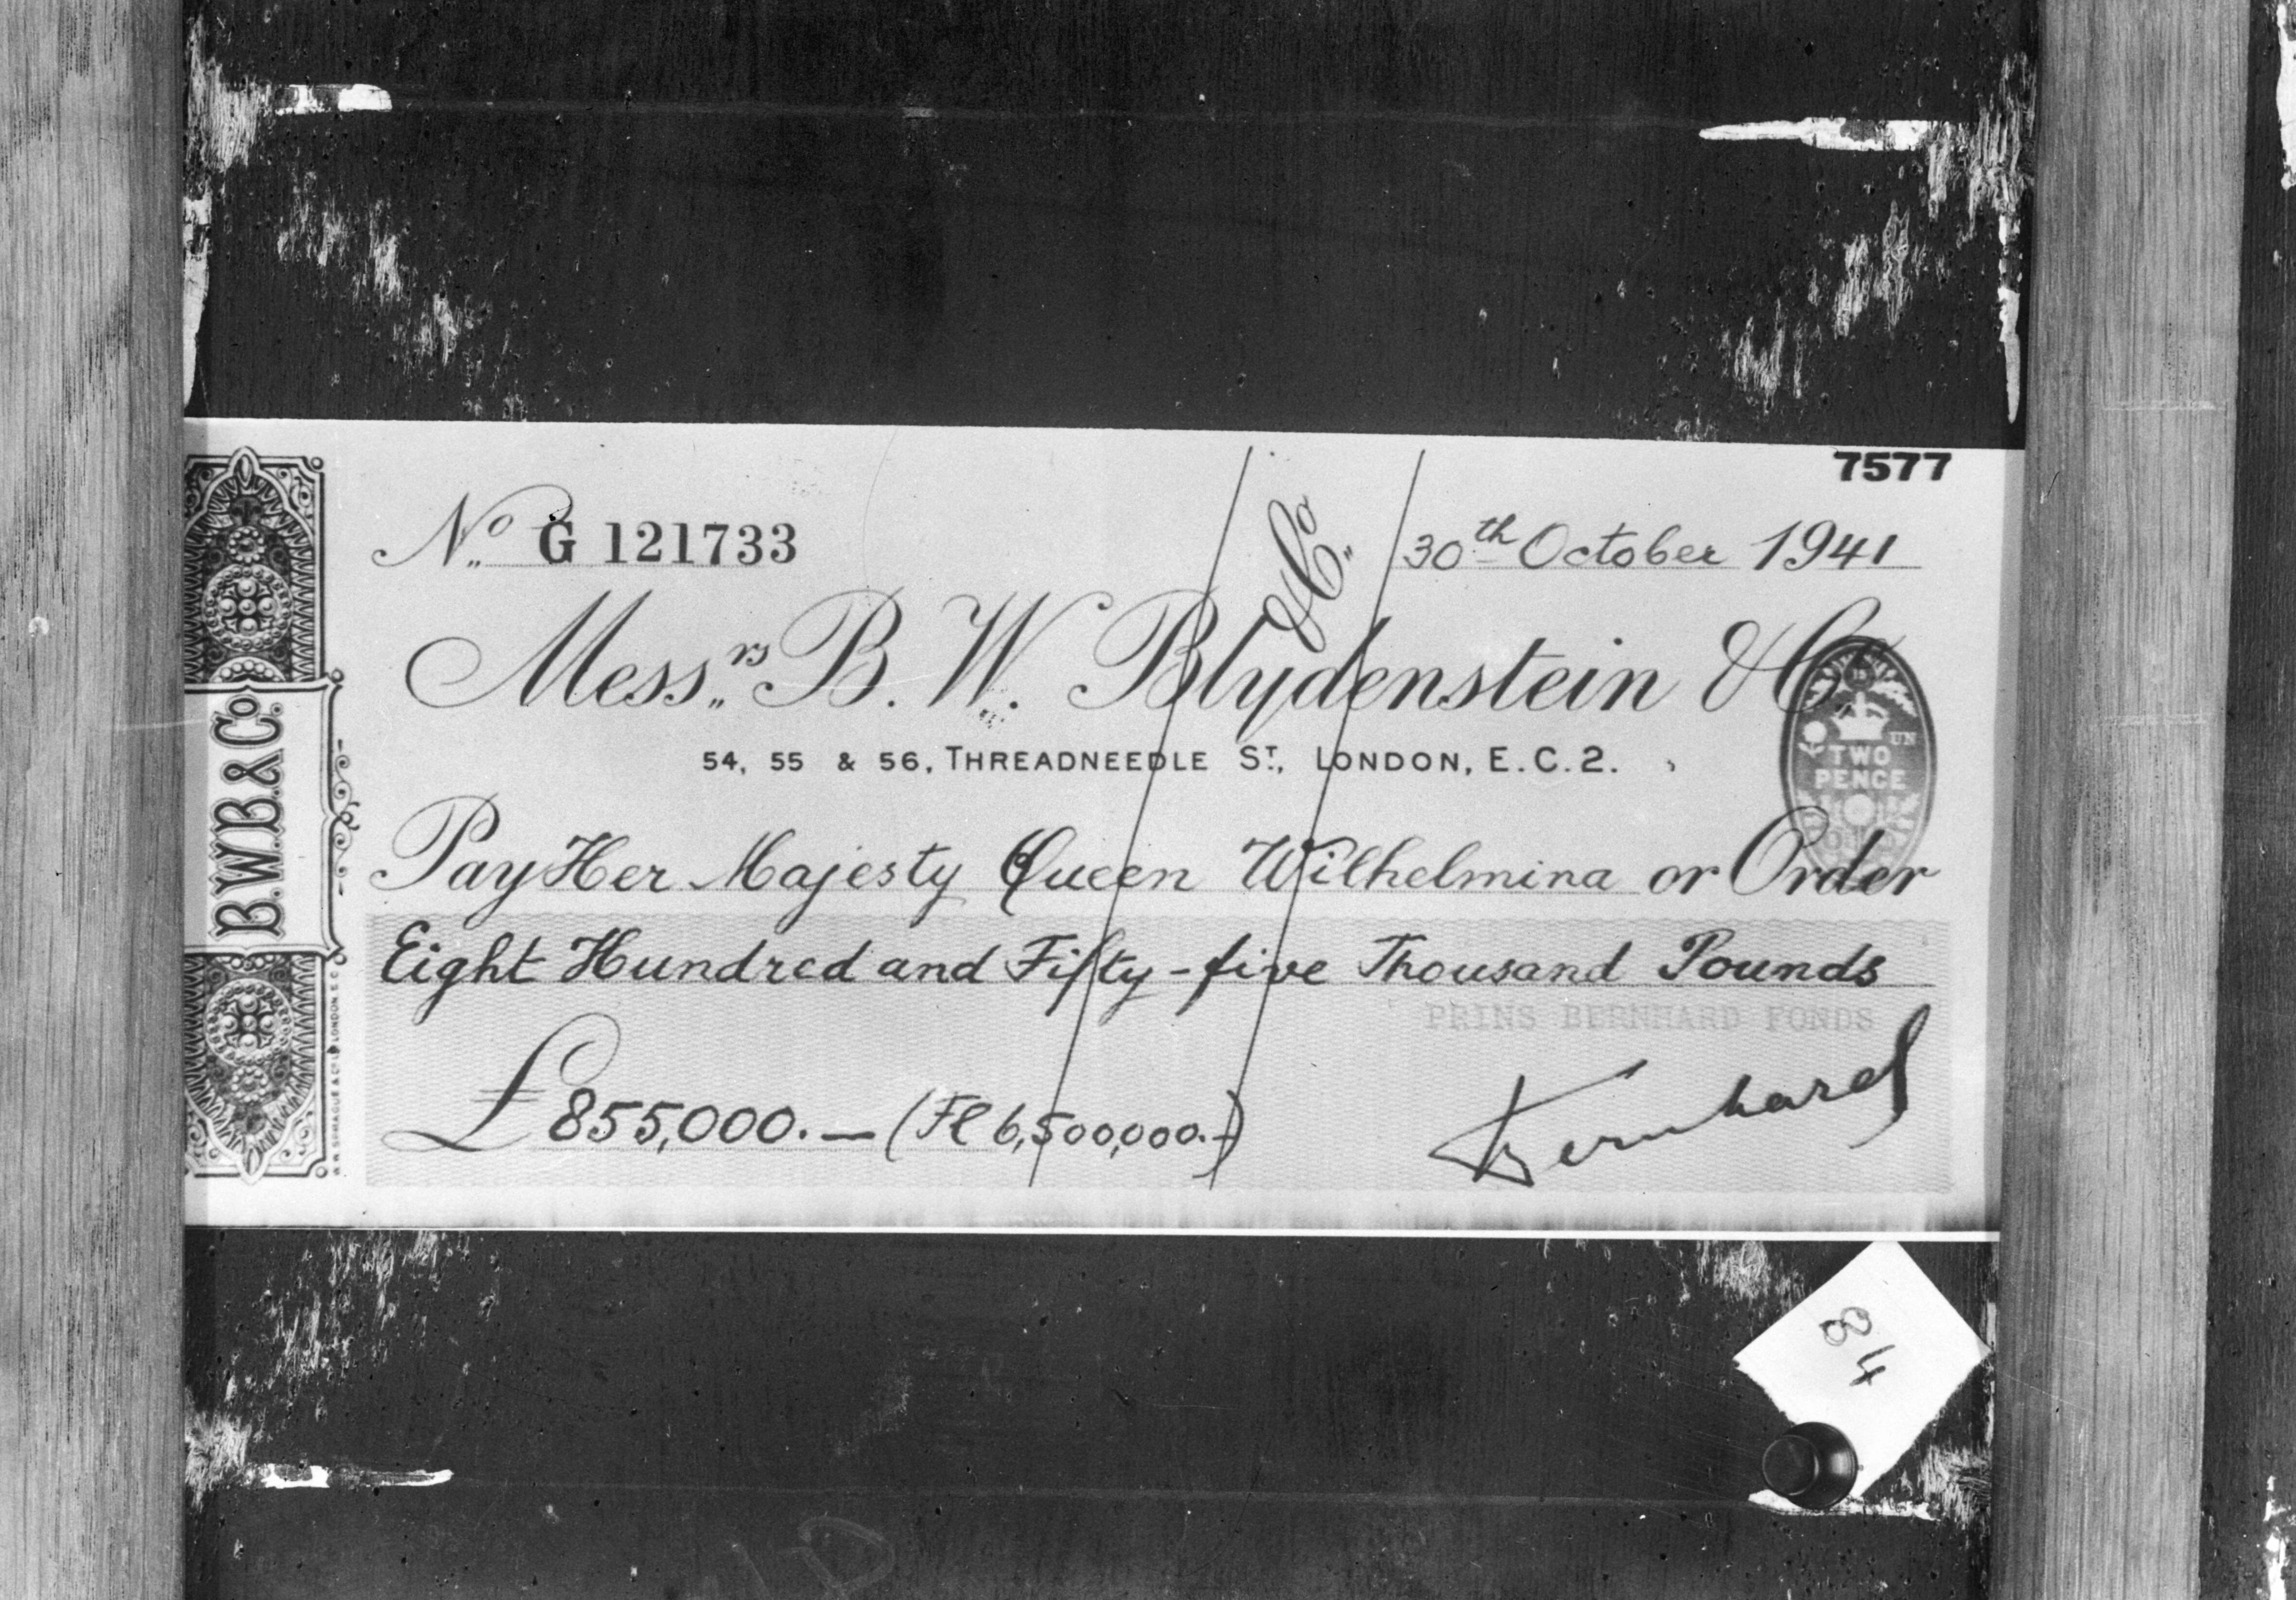 7577
No G 121733
& Co.
30th October 1941
Messrs B. W. Blydenstein & Co.
54, 55 & 56, THREADNEEDLE ST., LONDON, E.C.2.
B.W.B.& Co.
TWO
PENCE
Pay Her Majesty Queen Wilhelmina or Order
Eight Hundred and Fifty-five Thousand Pounds
PRINS BERNHARD FONDS
£ 855,000.— (Fl 6,500,000.-)
Bernhard
84